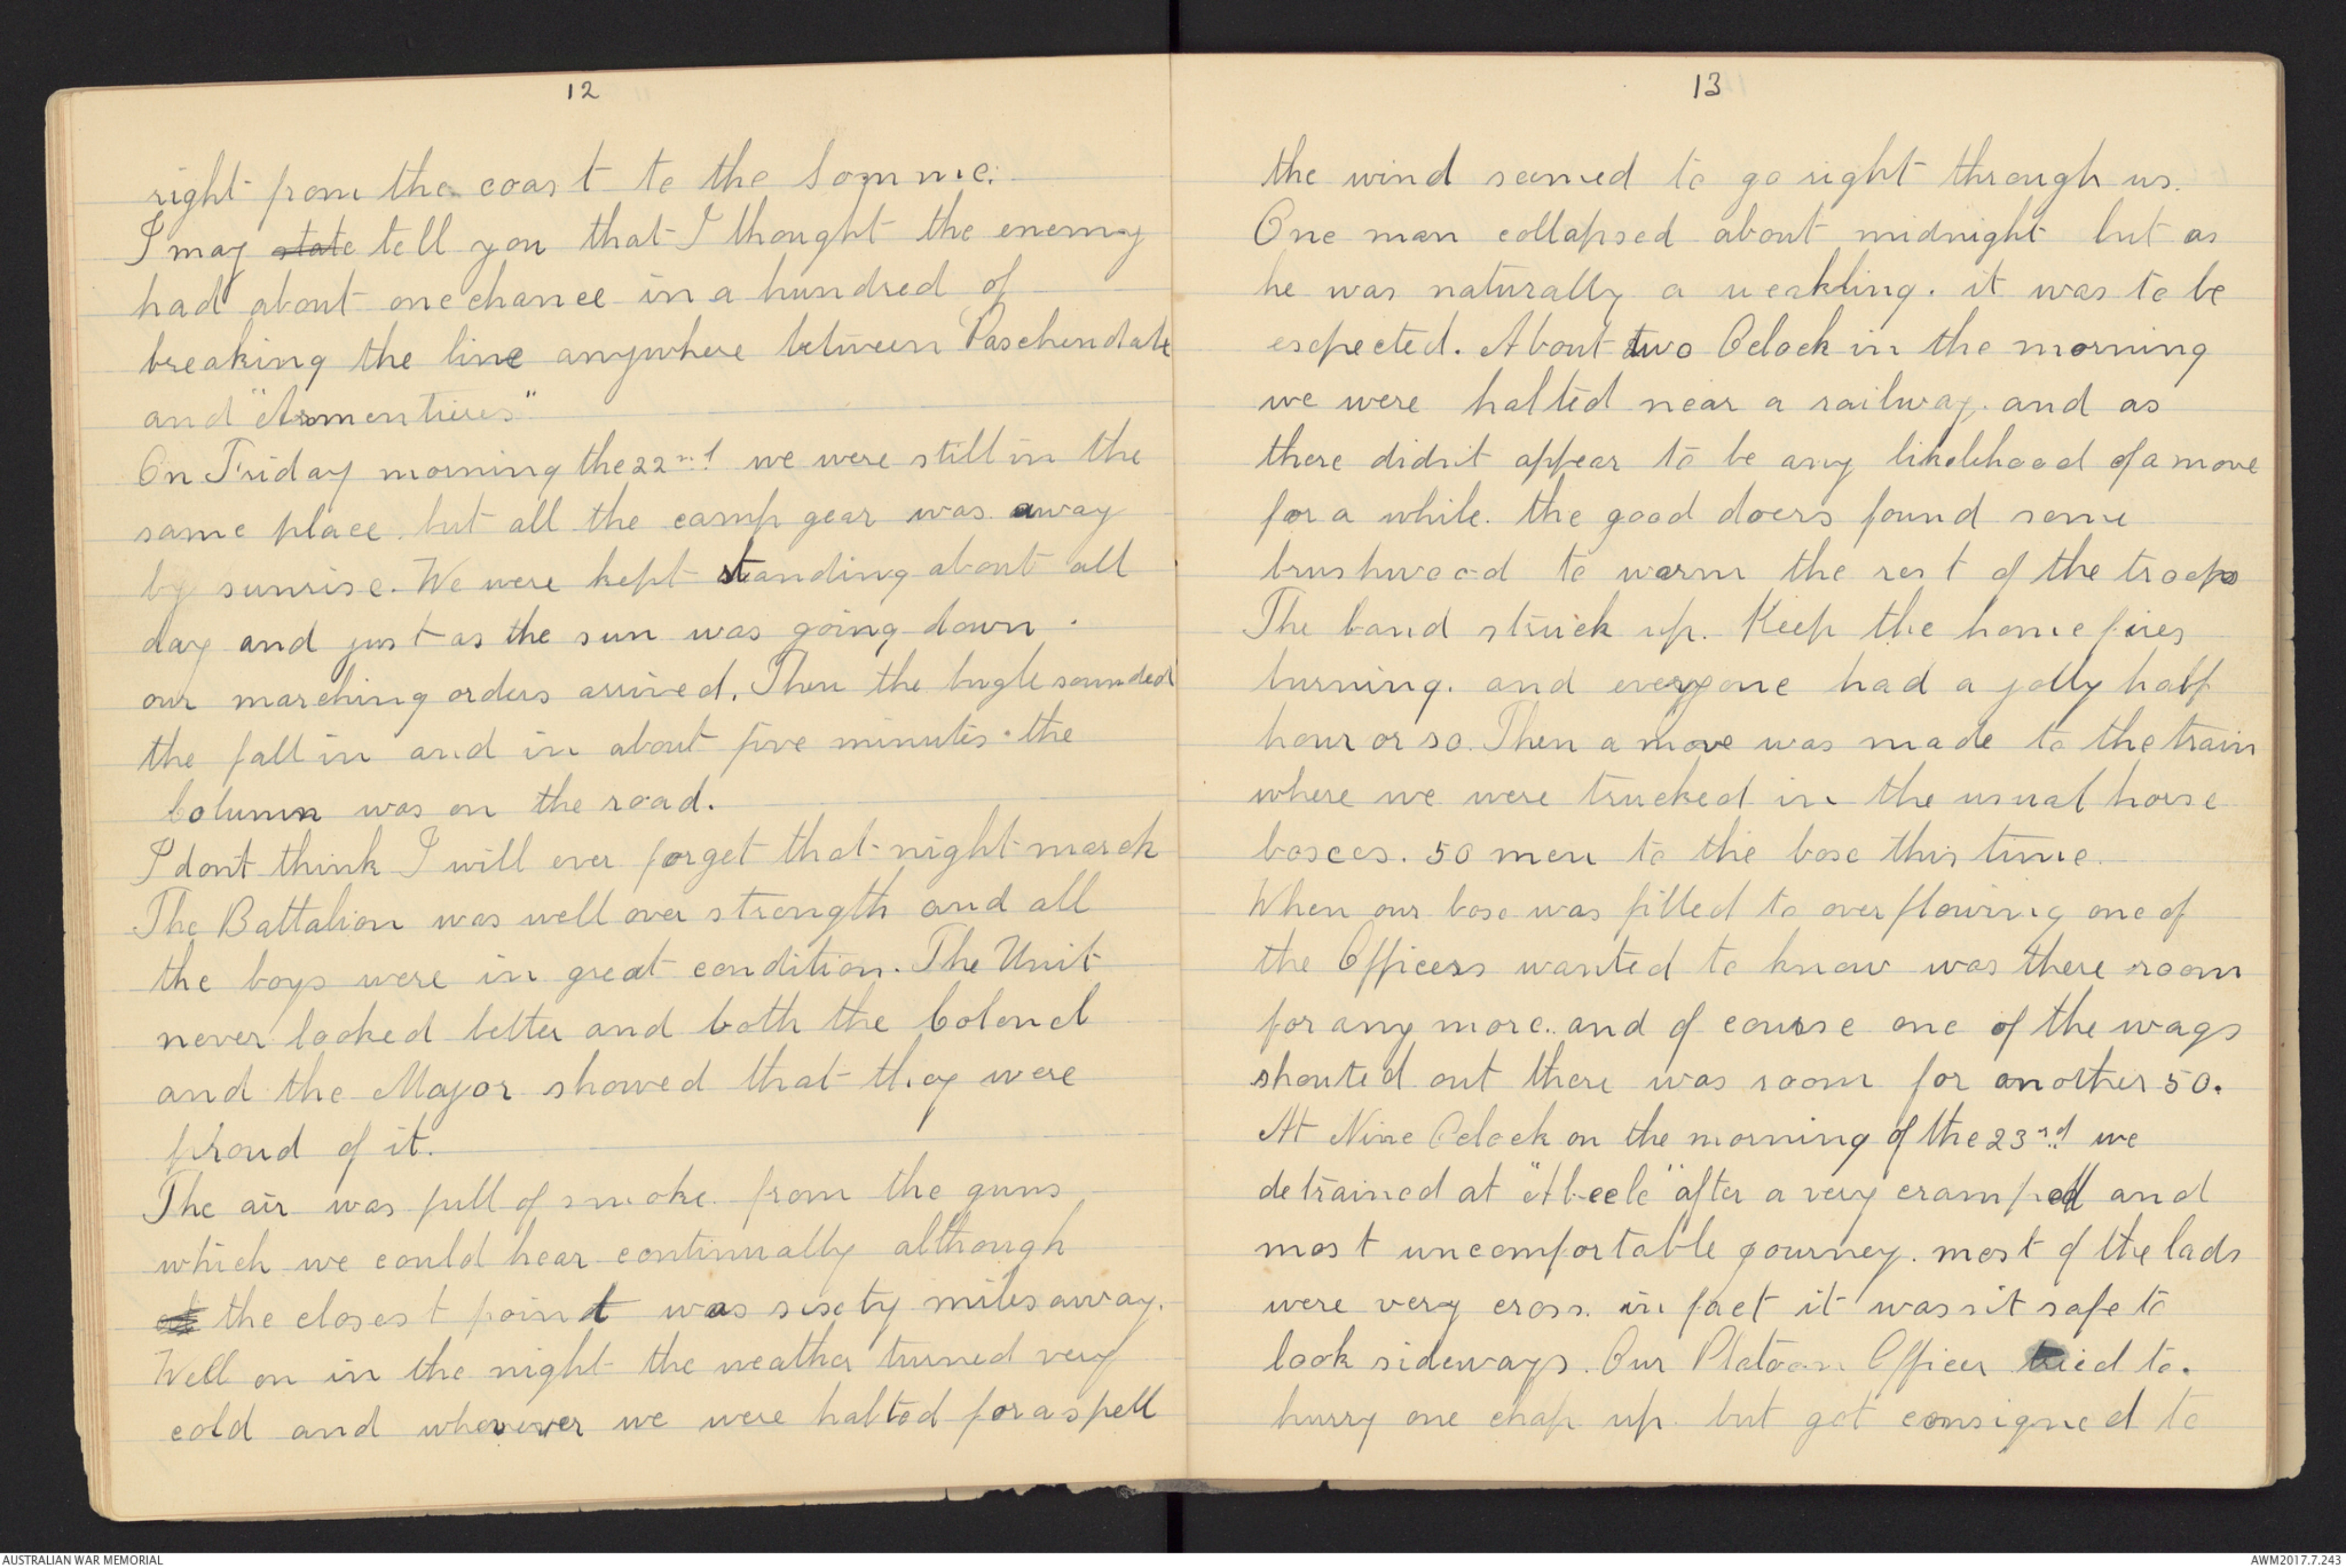 12
right from the coast to the Somme.
I may state tell you that I thought the enemy
had about one chance in a hundred of
breaking the line anywhere between Paschendale
and "Armentieres"
On Friday morning the 22nd we were still in the
same place. but all the camp gear was away
by sunrise. We were kept standing about all
day and just as the sun was going down.
our marching orders arrived. Then the bugle sounded
the fall in and in about five minutes. the
Column was on the road.
I dont think I will ever forget that night march
The Battalion was well over strength and all
the boys were in great condition. The Unit
never looked better and both the Colonel
and the Major showed that they were
proud of it.
The air was full of smoke from the guns
which we could hear continually although
the closest point was sixty miles away.
Well on in the night the weather turned very
cold and whenever we were halted for a spell
13
the wind seemed to go right through us.
One man collapsed about midnight but as
he was naturally a weakling. it was to be
expected. About two Oclock in the morning
we were halted near a railway. and as
there didn't appear to be any likelihood of a move
for a while. the good doers found some
brushwood to warm the rest of the troops
The band struck up. Keep the home fires
burning. and everyone had a jolly half
hour or so. Then a move was made to the train
where we were trucked in the usual horse
boxes. 50 men to the box this time.
When our box was filled to overflowing one of
the Officers wanted to know was there room
for any more. and of course one of the wags
shouted out there was room for another 50.
At Nine Oclock on the morning of the 23rd we
detrained at "Abeele" after a very cramped and
most uncomfortable journey. most of the lads
were very cross. in fact it wasn't safe to
look sideways. Our Platoon Officer tried to.
hurry one chap up. but got consigned to
AUSTRALIAN WAR MEMORIAL
AWM2017.7.243